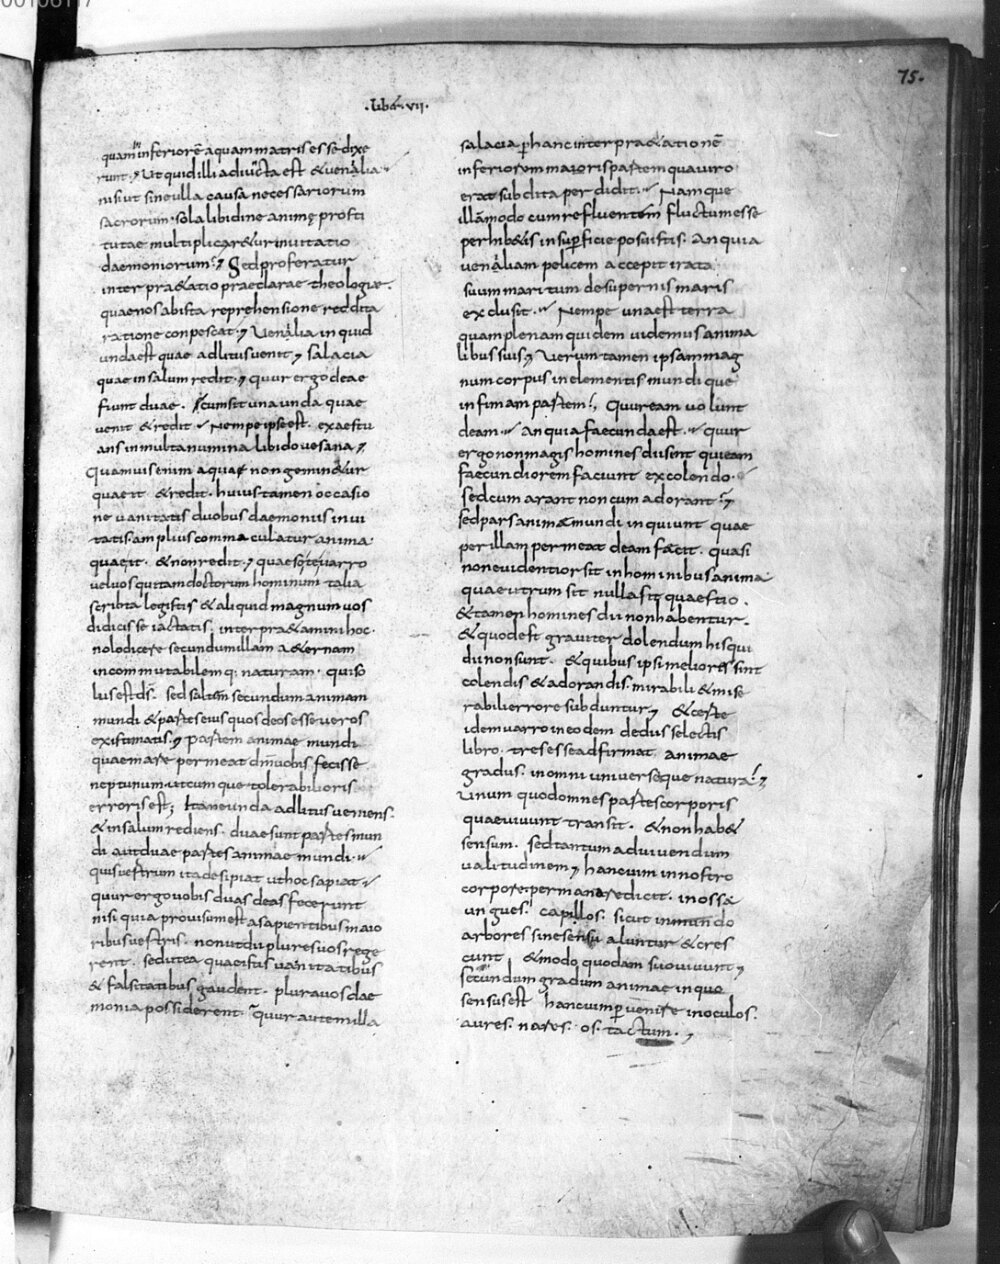 75.
.liber.vii.
quam inferiorē aquam matris esse dixe
runt. Ut quid illi adiuncta est & uenilia
nisi ut sine ulla causa necessariorum
sacrorum. sola libidine animę prosti
tutae multiplicar&ur inuitatio
daemoniorum? Sed proferatur
interpra&atio praeclarae theologiae.
quae nos ab ista reprehensione reddita
ratione conpescat. Uenilia inquid
unda est quae ad litus uenit, salacia
quae in salum redit. quur ergo deae
fiunt duae. cum sit una unda quae
uenit & redit. Nempe ipse est. exaestu
ans in multa numina libido uesana,
Quamuis enim aqua non gemin&ur
quae it & redit. huius tamen occasio
ne uanitatis duobus daemoniis inui
tatis. amplius commaculatur anima.
quae it. & non redit, quaeso te uarro
uel uos qui tam doctorum hominum talia
scribta legistis & aliquid magnum uos
didicisse iactatis. interpra&amini hoc.
nolo dicere secundum illam a&ernam
incommutabilemq: naturam. qui so
lus est d̄s. sed saltem secundum animam
mundi & partes eius quos deos esse ueros
existimatis. partem animae mundi
quae mare permeat dm̄ uobis fecisse
neptunum. utcumque tolerabilioris
erroris est; Itane unda ad litus ueniens.
& in salum rediens. duae sunt partes mun
di aut duae partes animae mundi.
quis uestrum ita desipiat ut hoc sapiat
quur ergo uobis duas deas fecerunt
nisi quia prouisum est a sapientibus maio
ribus uestris. non ut dii plures uos rege
rent. sed ut ea quae istis uanitatibus
& falsitatibus gaudent. plura uos dae
monia possiderent. quur autem illa
salacia p hanc interpra&ationē
inferiorem maioris partem qua uiro
erat subdita perdidit. Namque
illā modo cum refluentem fluctum esse
perhib&is in supficie posuistis. An quia
ueniliam pelicem accepit irata
suum maritum de supernis maris
exclusit. Nempe una est terra
quam plenam quidem uidemus anima
libus suis, Uerum tamen ipsam mag
num corpus in elementis mundique
infimam partem?, Quur eam uolunt
deam. an quia faecunda est. quur
ergo non magis homines dii sint qui eam
faecundiorem faciunt excolendo.
sed cum arant non cum adorant?
sed pars animae mundi inquiunt quae
per illam permeat deam facit. quasi
non euidentior sit in hominibus anima
quae utrum sit nulla fit quaestio.
& tamen homines dii non habentur.
& quod est grauiter dolendum his qui
dii non sunt. & quibus ipsi meliores sint
colendis & adorandis. mirabili & mise
rabili errore subduntur, & certe
idem uarro in eodem de diis selectis
libro. tres esse adfirmat animae
gradus. in omni uniuersaque natura?,
Unum quod omnes partes corporis
quae uiuunt transit. & non hab&
sensum. sed tantum ad uiuendum
ualitudinem, hanc uim in nostro
corpore permanare dicit. in ossa
ungues. capillos. sicut in mundo
arbores sine sensu aluntur & cres
cunt & modo quodam suo uiuunt,
secundum gradum animae in quo
sensus est hanc uim p uenire in oculos.
aures. nares. os. tactum.